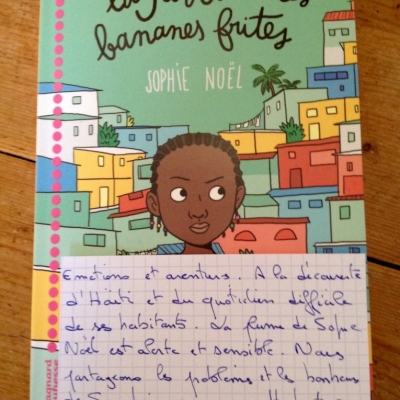 bananes frites
SOPHIE NOËL
Emotions et aventures. A la découverte
d'Haïti et du quotidien difficile
de ses habitants. La plume de Sophie
Noël est alerte et sensible. Nous
partageons les problèmes et les bonheurs
de
magnard
jeunesse